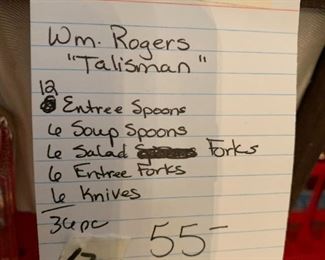 Wm. Rogers
"Talisman"
12
Entree Spoons
6 Soup Spoons
6 Salad Forks
6 Entree Forks
6 Knives
36pc
55-